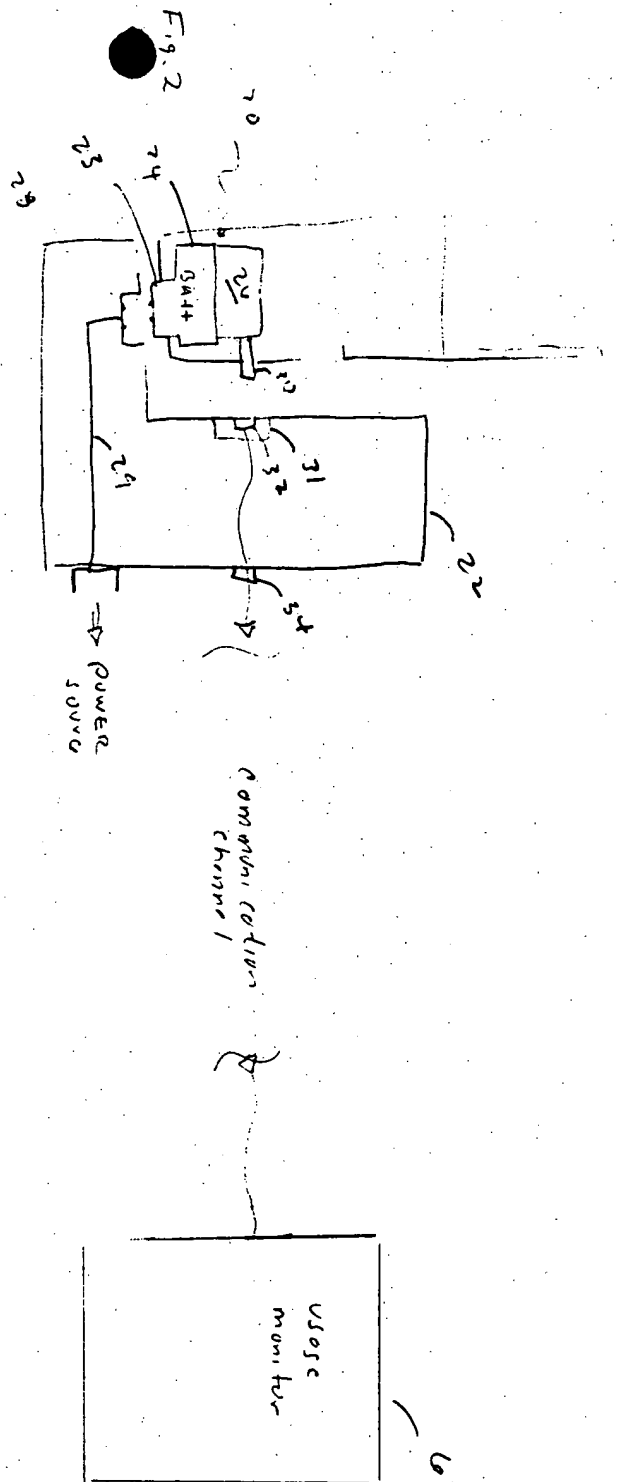 Fig. 2
20
24
Batt
30
31
32
22
34
power
source
communication
channel
usage
monitor
6